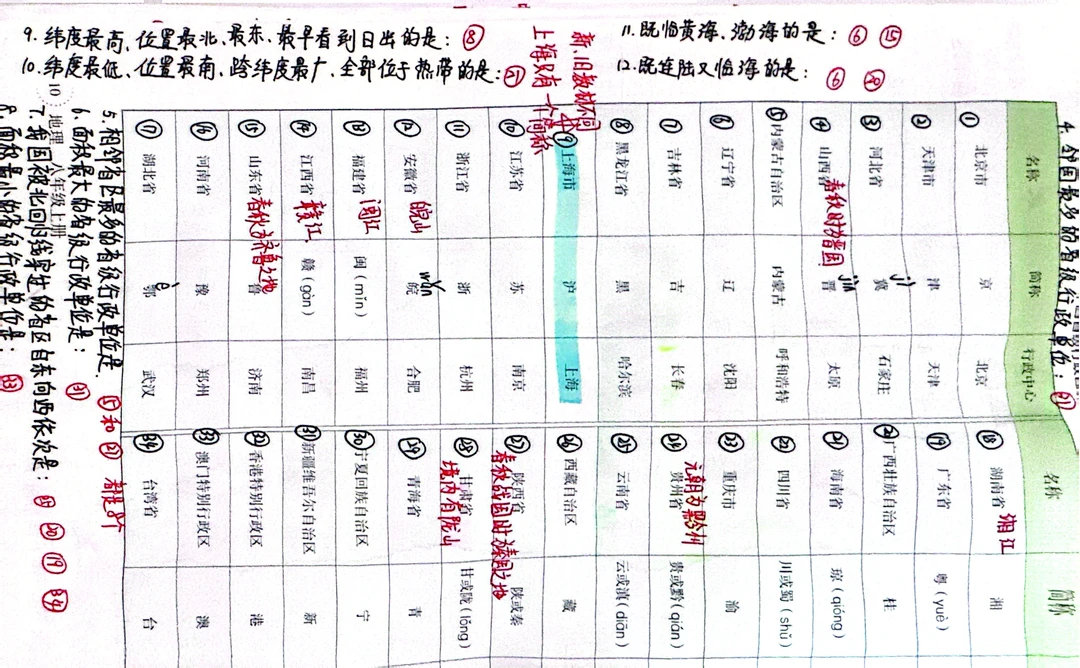 9. 纬度最高、位置最北、最东、最早看到日出的是： ⑧
10. 纬度最低、位置最南、跨纬度最广、全部位于热带的是： ㉑
11. 既临黄海、渤海的是： ⑥ ⑮
12. 既连陆又临海的是： ⑥ ⑳
新、旧教材不同
上海只有一个简称
4. 邻国最多的省级行政单位： ㉛
名称 简称 行政中心
① 北京市 京 北京
② 天津市 津 天津
③ 河北省 冀 jì 石家庄
④ 山西省 春秋时为晋国 晋 jìn 太原
⑤ 内蒙古自治区 内蒙古 呼和浩特
⑥ 辽宁省 辽 沈阳
⑦ 吉林省 吉 长春
⑧ 黑龙江省 黑 哈尔滨
⑨ 上海市 沪 上海
⑩ 江苏省 苏 南京
⑪ 浙江省 浙 杭州
⑫ 安徽省 皖山 皖 wǎn 合肥
⑬ 福建省 闽江 闽（mǐn） 福州
⑭ 江西省 赣江 赣（gàn） 南昌
⑮ 山东省 春秋为齐鲁之地 鲁 济南
⑯ 河南省 豫 郑州
⑰ 湖北省 鄂 è 武汉
名称 简称
⑱ 湖南省 湘江 湘
⑲ 广东省 粤（yuè）
⑳ 广西壮族自治区 桂
㉑ 海南省 琼（qióng）
㉒ 四川省 川或蜀（shǔ）
㉓ 重庆市 渝
㉔ 贵州省 元朝为黔州 贵或黔（qián）
㉕ 云南省 云或滇（diān）
㉖ 西藏自治区 藏
㉗ 陕西省 春秋战国时为秦国之地 陕或秦
㉘ 甘肃省 境内有陇山 甘或陇（lǒng）
㉙ 青海省 青
㉚ 宁夏回族自治区 宁
㉛ 新疆维吾尔自治区 新
㉜ 香港特别行政区 港
㉝ 澳门特别行政区 澳
㉞ 台湾省 台
5. 相邻省区最多的省级行政单位是： ⑤和㉗ 都是8个
6. 面积最大的省级行政单位是： ㉛
10 地理 八年级上册
7. 我国被北回归线穿过的省区自东向西依次是： ㉕ ⑳ ⑲ ㉞
8. 面积最小的省级行政单位是： ㉝